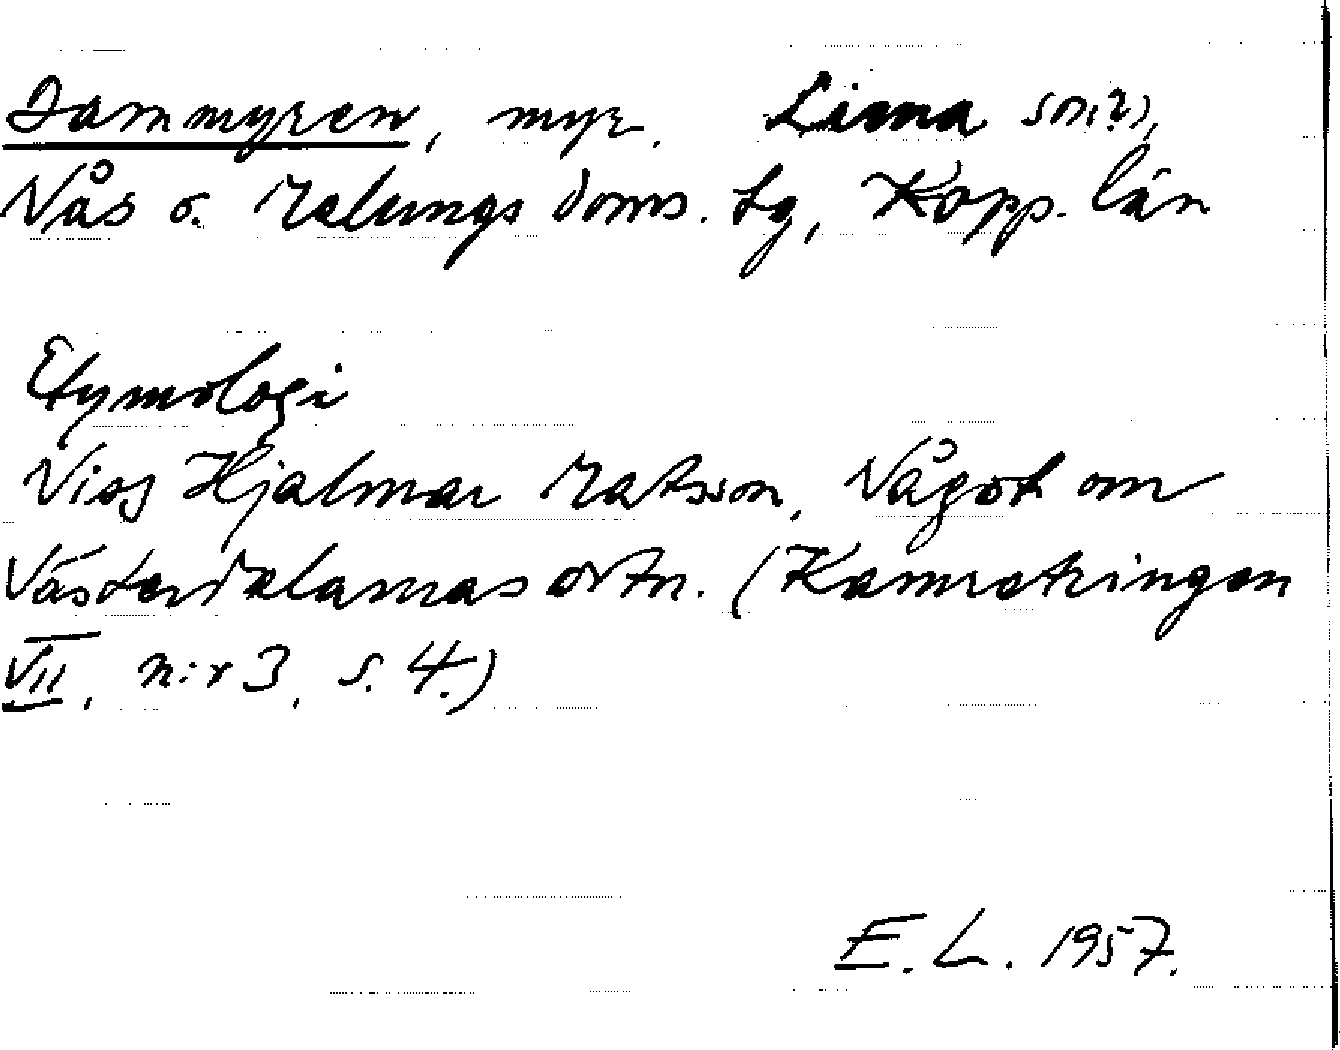 Dammyren, myr. Lima sn(?),
Nås o. Malungs doms. hg, Kopp. län
Etymologi
Viss Hjalmar Matsson, Något om
Västerdalarnas ortn. (Kamratringen
VII, n:r 3, s. 4.)
E. L. 1957.